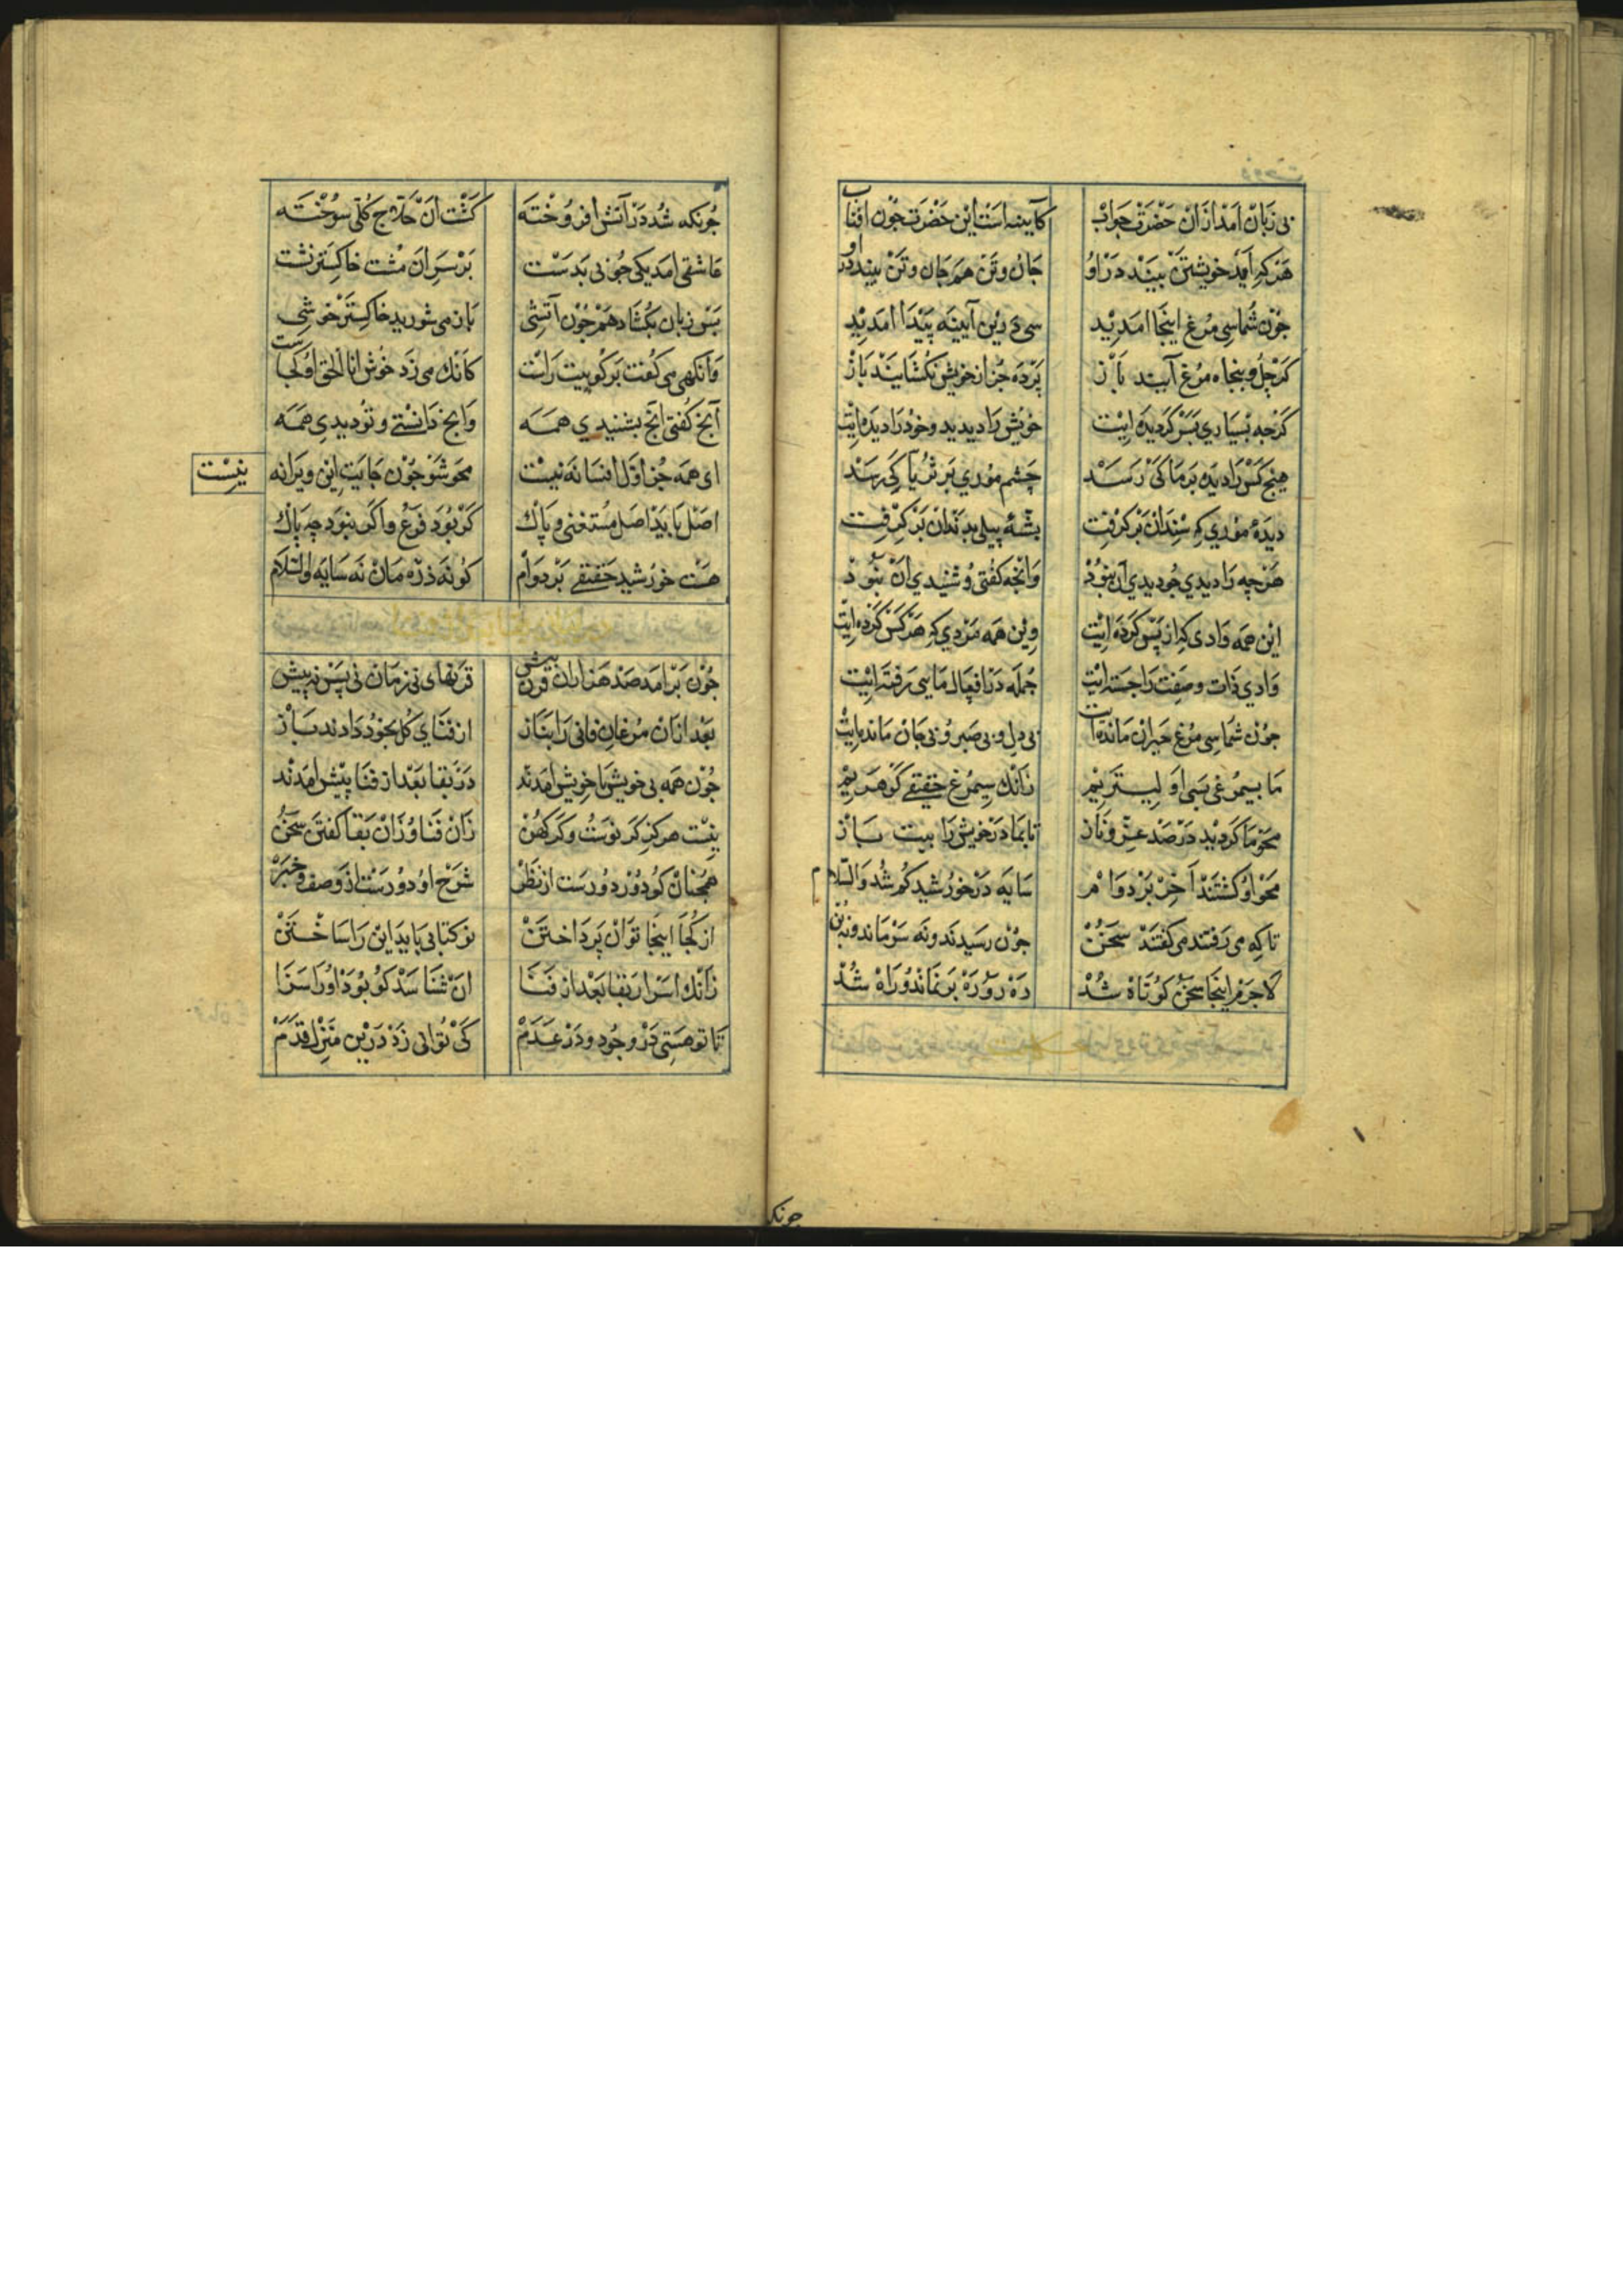 بی زبان آمد ازان حضرت جواب کآیینه است این حضرت چون افتاب
هرکه آید خویشتن بیند در او جان و تن هم جان و تن بیند در او
چون شما سی مرغ اینجا آمدید سی درین آیینه پیدا آمدید
کر چل و پنجاه مرغ آیید باز پرده جز از خویش نکشایند باز
کرچه بسیاری بسر کردیده ایت خویش را دیدید و خود را دیده ایت
هیچ کس را دیده بر ما کی رسد چشم موری بر ثریا کی رسد
دیدهٔ موری که سندان برکرفت بشهٔ پیلی بدندان برکرفت
هرچه را دیدی چو دیدی آن نبود وانچه کفتی و شنیدی آن نبود
این همه وادی که از پس کرده ایت وین همه مردی که هر کس کرده ایت
جمله در افعال مایی رفته ایت وادی ذات و صفت را جسته ایت
چون شما سی مرغ حیران مانده ات بی دل و بی صبر و بی جان مانده ایت
ما بسیمرغی بسی اولیتریم زانک سیمرغ حقیقی کوهریم
محو ما کردید در صد عز و ناز تا بما در خویش را بیت باز
محو او کشتند آخر بر دوام سایه در خورشید کم شد والسلام
تا که می رفتند می کفتند سخن چون رسیدند و نه سر ماند و نه بن
لاجرم اینجا سخن کوتاه شد ره رو و ره بر نماند و راه شد
چونکه
چونکه شد در آتش افروخته کشت آن حلاج کلی سوخته
عاشقی آمد یکی چوبی بدست بر سر آن مشت خاکستر نشت
بس زبان بکشاد همچون آتشی باز می شورید خاکستر خوشی
وانکهی می کفت برکوییت راست کانک می زد خوش انا الحق او کجاست
آنچ کفتی آنچ بشنیدی همه وانچ دانستی و تو دیدی همه
ای همه جز اول افسانه نیست محو شو چون جایت این ویرانه
نیست
اصل باید اصل مستغنی و پاک کر بود فرع و اکر نبود چه باک
هست خورشید حقیقی بر دوام کو نه ذره مان نه سایه والسلام
چون برامد صد هزاران قرن بیش قرنهای بی زمان نی پس نه پیش
بعد ازان مرغان فانی را بناز از فنای کل بخود دادند باز
چون همه بی خویش با خویش آمدند در بقا بعد از فنا پیش آمدند
نیت هرکز کر نوست و کر کهن زان فنا و زان بقا کفتن سخن
همچنان کو دور دورست از نظر شرح او دورست از وصف و خبر
از کجا اینجا توان پرداختن نو کتابی باید این را ساختن
زانک اسرار بقا بعد از فنا آن شناسد کو بود او را سزا
تا تو هستی در وجود و در عدم کی توانی زد درین منزل قدم